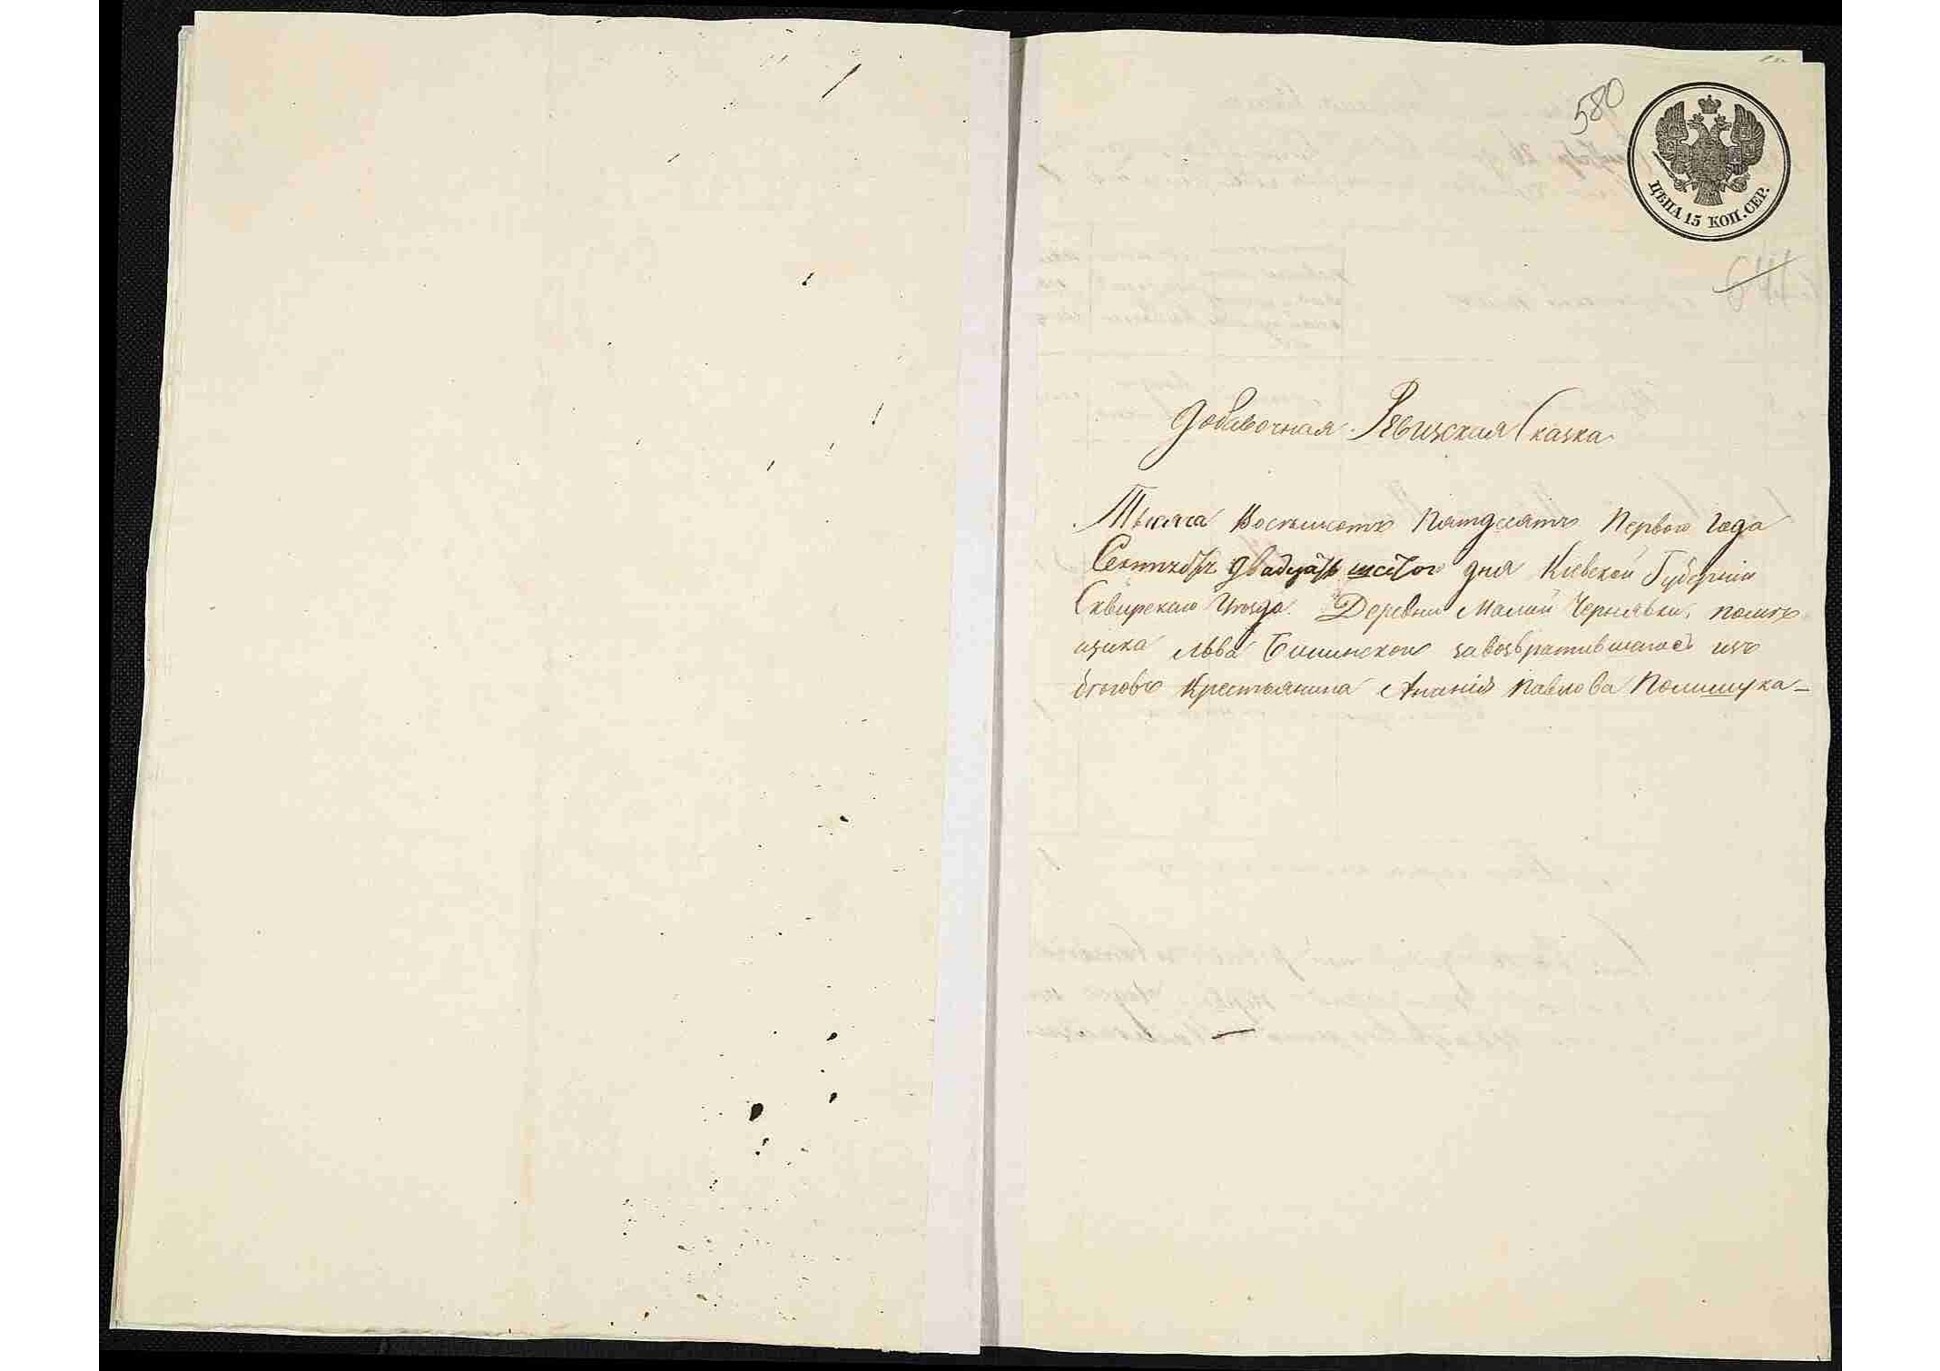 580
ЦѢНА 15 КОП. СЕР.
Добавочная Ревизская Сказка
Тысяча Восемьсотъ Пятдесятъ Перваго года
Сентября двадцать шестого дня Кіевской Губерніи
Сквирскаго Уѣзда Деревни Малой Чернявки, помѣ
щика Льва завозвратившагось изъ
бѣговъ Крестьянина Ананія Павлова Полищука